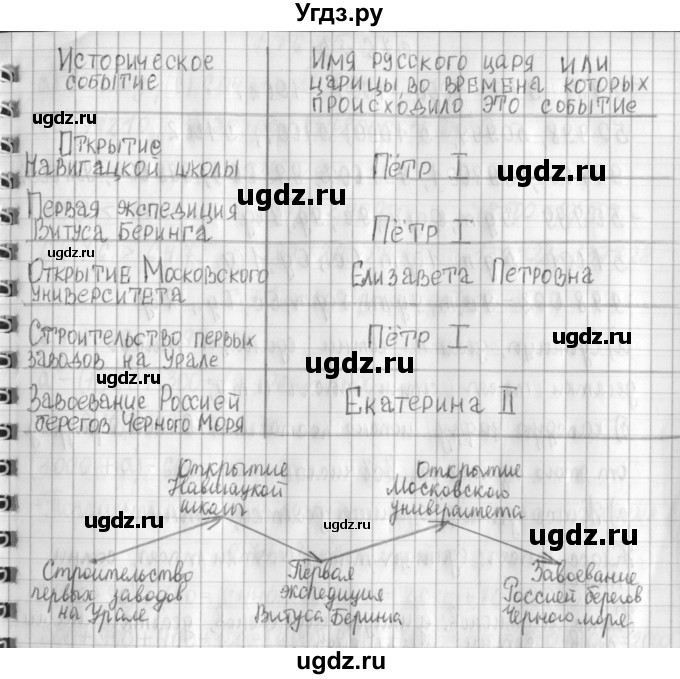 Угдз.ру
Историческое событие
Имя русского царя или
царицы, во времена которых
происходило это событие
Открытие
Навигацкой школы
Пётр I
ugdz.ru
ugdz.ru
ugdz.ru
Первая экспедиция
Витуса Беринга
Пётр I
ugdz.ru
ugdz.ru
Открытие Московского
университета
Елизавета Петровна
Строительство первых
заводов на Урале
Пётр I
ugdz.ru
ugdz.ru
ugdz.ru
Завоевание Россией
берегов Чёрного Моря
Екатерина II
Открытие
Навигацкой
школы
Открытие
Московского
университета
ugdz.ru
ugdz.ru
ugdz.ru
Строительство
первых заводов
на Урале
Первая
экспедиция
Витуса Беринга
Завоевание
Россией берегов
Чёрного моря
ugdz.ru
ugdz.ru